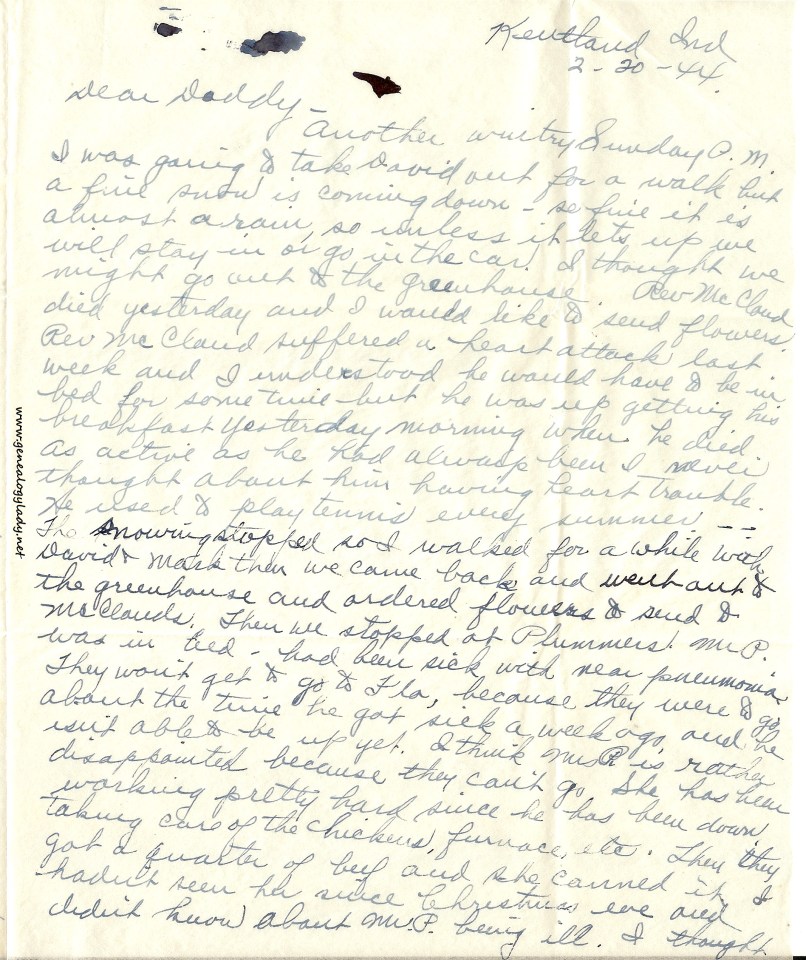 Kentland Ind
2-20-44.
Dear Daddy-
Another wintry Sunday P.M.
I was going to take David out for a walk but
a fine snow is coming down - so fine it is
almost a rain, so unless it lets up we
will stay in or go in the car. I thought we
might go out to the greenhouse. Rev McCloud
died yesterday and I would like to send flowers.
Rev McCloud suffered a heart attack last
week and I understood he would have to be in
bed for sometime but he was up getting his
breakfast yesterday morning when he died.
As active as he had always been I never
thought about him having heart trouble.
He used to play tennis every summer --
The snowing stopped so I walked for a while with
David & Mark then we came back and went out to
the greenhouse and ordered flowers to send to
McClouds. Then we stopped at Plummers. Mr P.
was in bed - had been sick with near pneumonia
They won't get to go to Fla, because they were to go
about the time he got sick a week ago and he
isn't able to be up yet. I think Mrs P is rather
disappointed because they can't go. She has been
working pretty hard since he has been down
taking care of the chickens, furnace, etc. Then they
got a quarter of beef and she canned it. I
hadn't seen her since Christmas eve and
didn't know about Mr. P. being ill. I thought
www.genealogylady.net